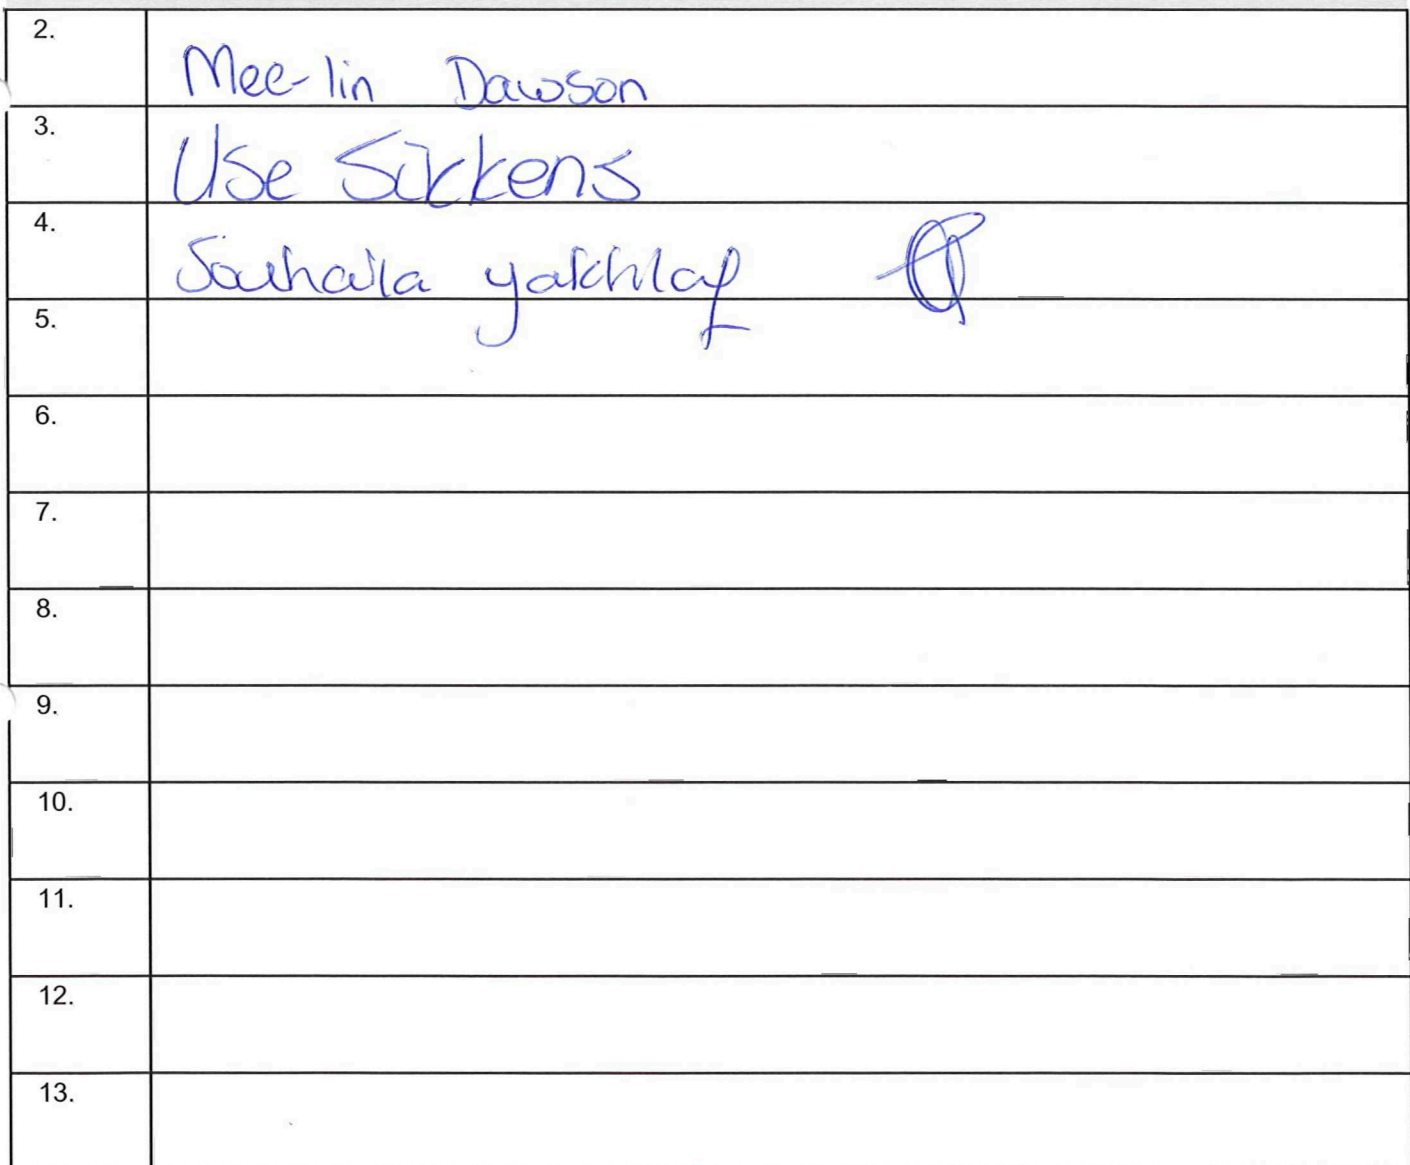 2. Mee-lin Dawson
3. Use Sikkens
4. Souhaila yakhlaf
5.
6.
7.
8.
9.
10.
11.
12.
13.